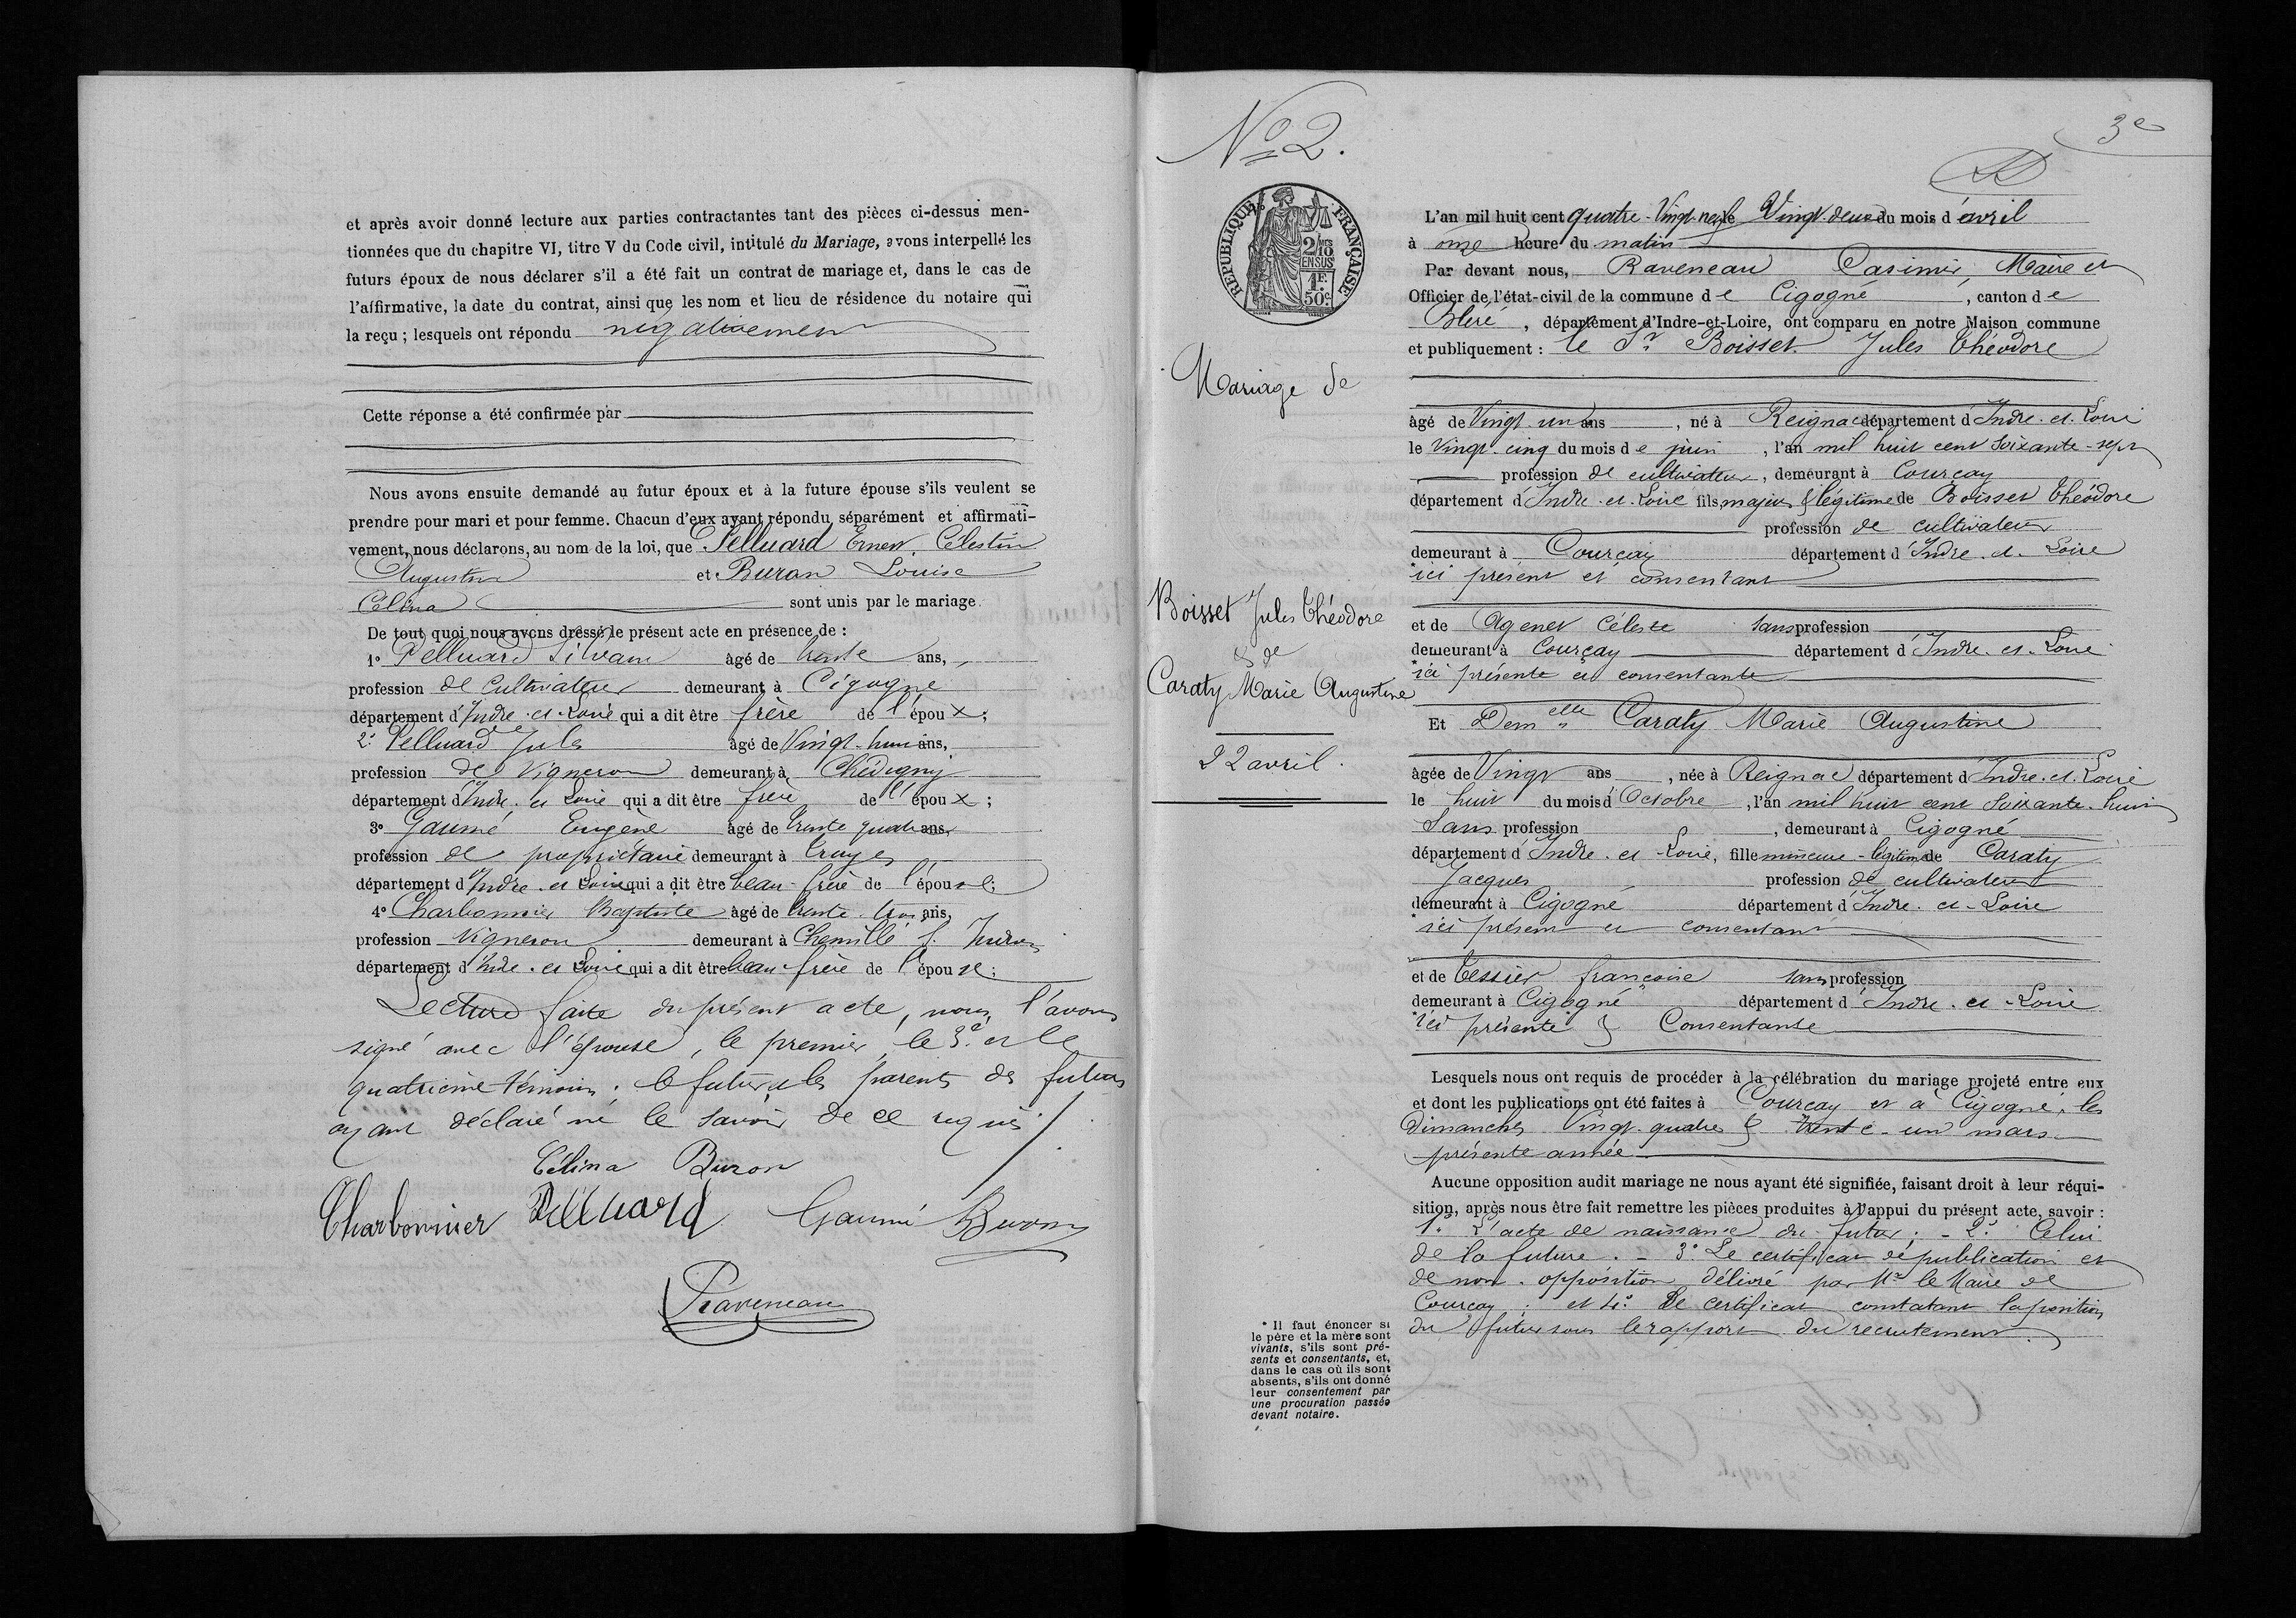 et après avoir donné lecture aux parties contractantes tant des pièces ci-dessus men-
tionnées que du chapitre VI, titre V du Code civil, intitulé du Mariage, avons interpellé les
futurs époux de nous déclarer s'il a été fait un contrat de mariage et, dans le cas de
l'affirmative, la date du contrat, ainsi que les nom et lieu de résidence du notaire qui
la reçu ; lesquels ont répondu négativement
Cette réponse a été confirmée par
Nous avons ensuite demandé au futur époux et à la future épouse s'ils veulent se
prendre pour mari et pour femme. Chacun d'eux ayant répondu séparément et affirmati-
vement, nous déclarons, au nom de la loi, que Pelluard Ernest Célestin
Augustin et Buron Louise
Célina sont unis par le mariage.
De tout quoi nous avons dressé le présent acte en présence de :
1° Pelluard Silvain âgé de trente ans,
profession de Cultivateur demeurant à Cigogné
département d'Indre-et-Loire qui a dit être frère de l'époux ;
2° Pelluard Jules âgé de Vingt-huit ans,
profession de Vigneron demeurant à Chédigny
département d'Indre et Loire qui a dit être frère de l'époux ;
3° Gaumé Eugène âgé de trente quatre ans,
profession de propriétaire demeurant à Truyes
département d'Indre et Loire qui a dit être beau-frère de l'épouse ;
4° Charbonnier Baptiste âgé de trente trois ans,
profession Vigneron demeurant à Chemillé s. Indrois
département d'Indre et Loire qui a dit être beau-frère de l'épouse ;
Lecture faite du présent acte, nous l'avons
signé avec l'épouse, le premier, le 3e et le
quatrième témoins. le futur et les parents des futurs
ayant déclaré ne le savoir de ce requis
Célina Buron
Charbonnier Pelluard Gaumé Buron
Raveneau
N° 2.
3e
REPUBLIQUE FRANÇAISE
2/10 MES
EN SUS
1 F.
50 c.
Mariage de
Boisset Jules Théodore
& de
Caraty Marie Augustine
22 avril.
* Il faut énoncer si
le père et la mère sont
vivants, s'ils sont pré-
sents et consentants, et,
dans le cas où ils sont
absents, s'ils ont donné
leur consentement par
une procuration passée
devant notaire.
L'an mil huit cent quatre-Vingt-neuf le Vingt-deux du mois d'avril
à onze heure du matin
Par devant nous, Raveneau Casimir, Maire et
Officier de l'état-civil de la commune de Cigogné, canton de
Bléré, département d'Indre-et-Loire, ont comparu en notre Maison commune
et publiquement : le Sr Boisset Jules Théodore
âgé de Vingt un ans, né à Reignac département d'Indre-et-Loire
le Vingt-cinq du mois de juin, l'an mil huit cent soixante-sept
profession de cultivateur, demeurant à Courçay
département d'Indre-et-Loire fils majeur & légitime de Boisset Théodore
profession de cultivateur
demeurant à Courçay département d'Indre-et-Loire
*ici présent et consentant
et de Agenet Céleste sans profession
demeurant à Courçay département d'Indre-et-Loire
*ici présente et consentante
Et Demelle Caraty Marie Augustine
âgée de Vingt ans, née à Reignac département d'Indre-et-Loire
le huit du mois d'Octobre, l'an mil huit cent soixante-huit
Sans profession, demeurant à Cigogné
département d'Indre-et-Loire, fille mineure-légitime de Caraty
Jacques profession de cultivateur
demeurant à Cigogné département d'Indre-et-Loire
*ici présent et consentant
et de Tessier françoise sans profession
demeurant à Cigogné département d'Indre-et-Loire
*ici présente & Consentante
Lesquels nous ont requis de procéder à la célébration du mariage projeté entre eux
et dont les publications ont été faites à Courçay et à Cigogné, les
Dimanches Vingt-quatre & trente-un mars
présente année
Aucune opposition audit mariage ne nous ayant été signifiée, faisant droit à leur réqui-
sition, après nous être fait remettre les pièces produites à l'appui du présent acte, savoir :
1° L'acte de naissance du futur ; - 2° Celui
de la future. - 3° Le certificat de publication et
de non-opposition délivré par Mr le Maire de
Courçay ; et 4° Le certificat constatant la position
du futur sous le rapport du recrutement.